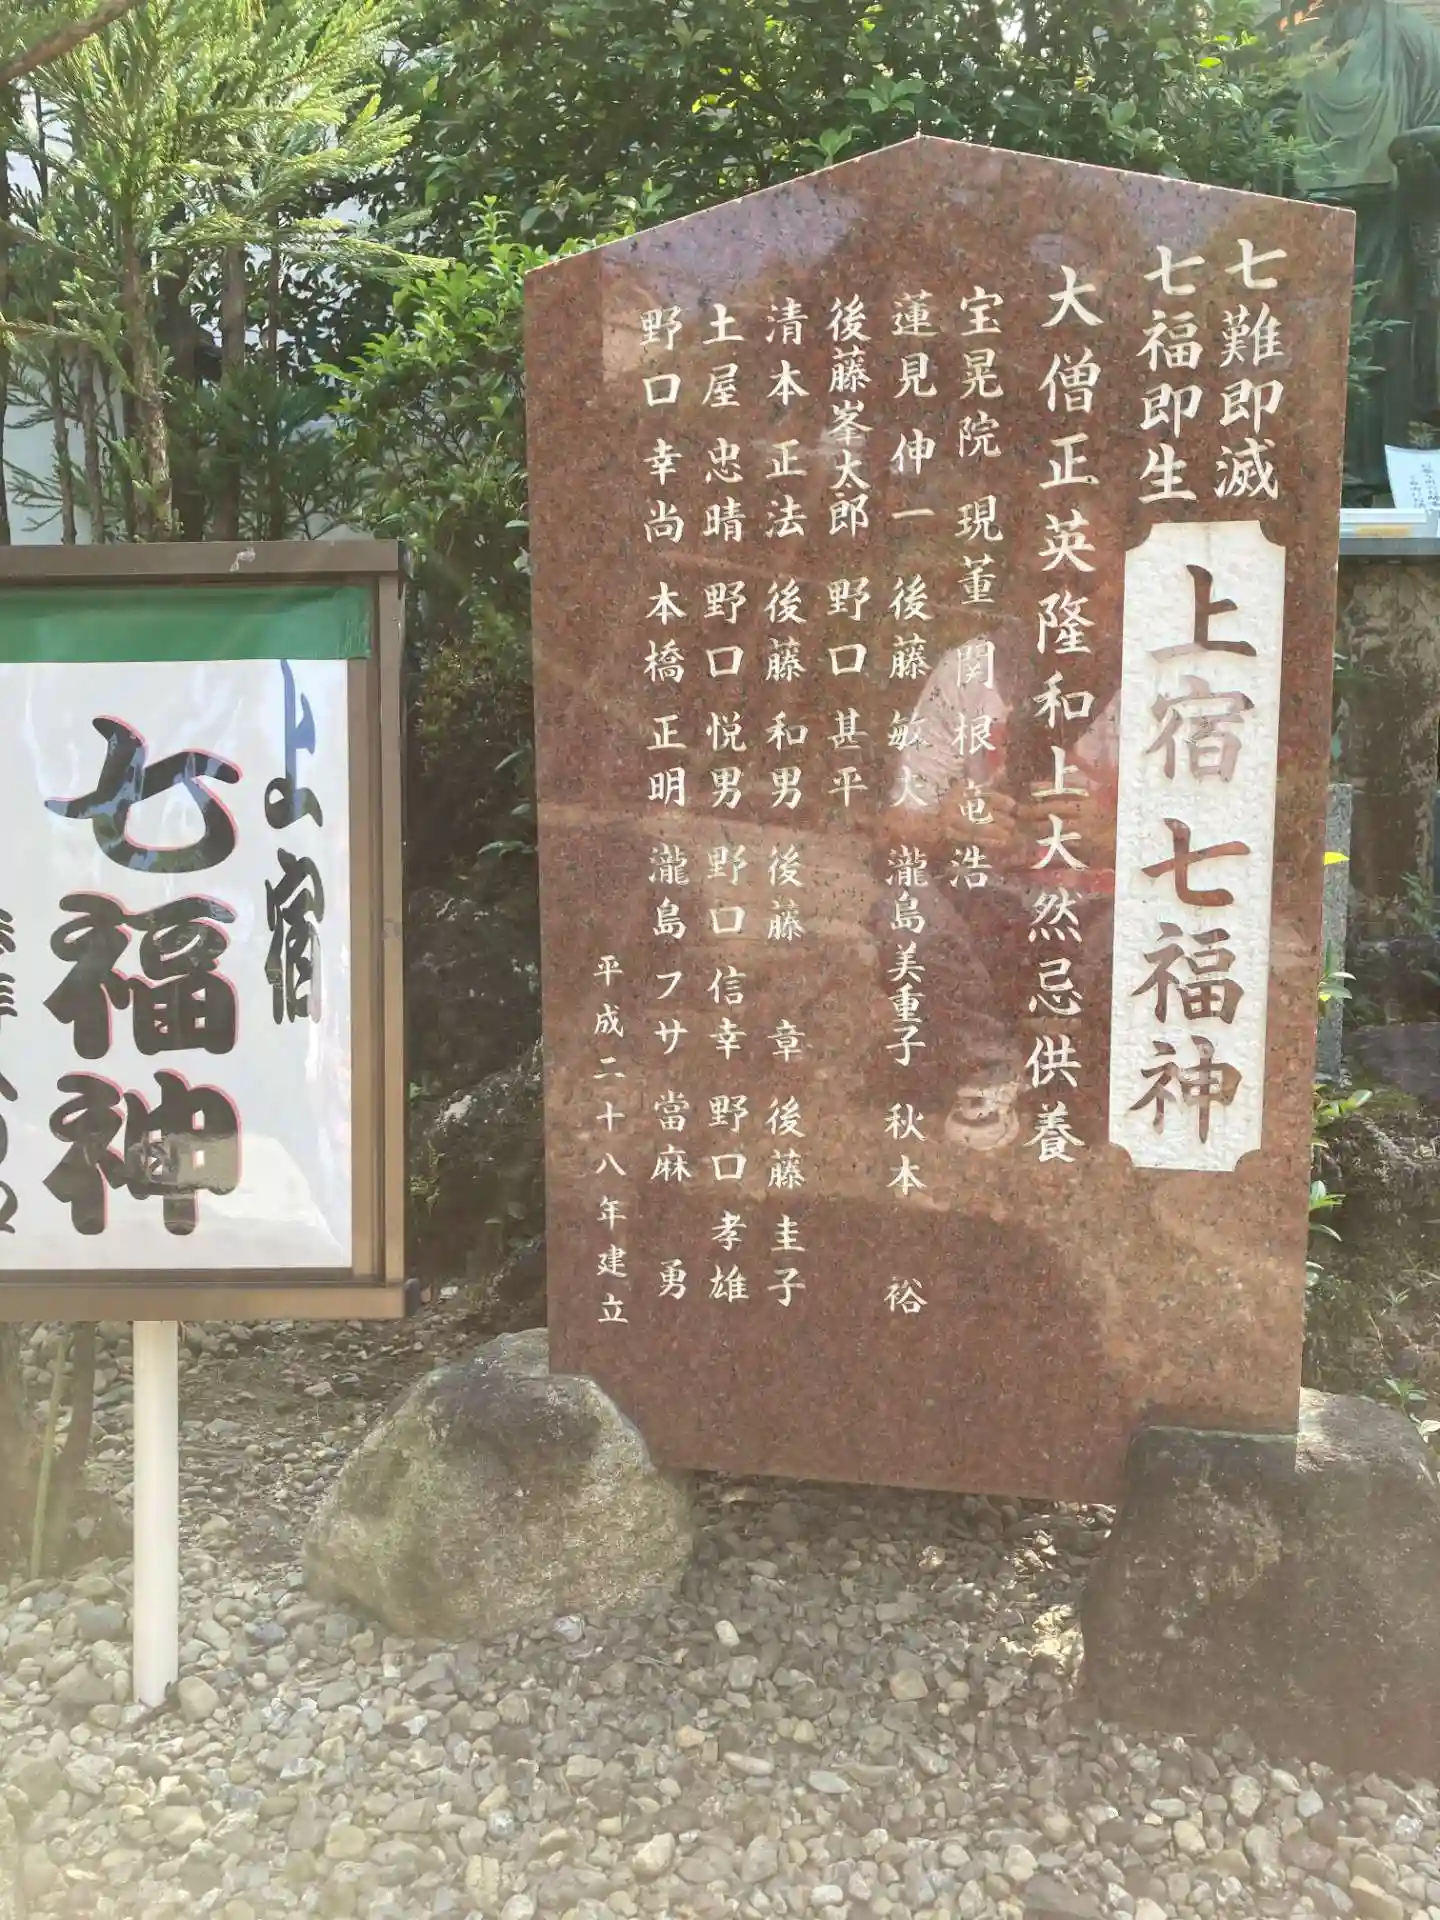 七難即滅
七福即生
上宿七福神
大僧正英隆和上大然忌供養
宝晃院 現董 関根竜浩
蓮見伸一 後藤敏夫 瀧島美重子 秋本 裕
後藤峯太郎 野口甚平
清本正法 後藤和男 後藤 章 後藤圭子
土屋忠晴 野口悦男 野口信幸 野口孝雄
野口幸尚 本橋正明 瀧島フサ 當麻 勇
平成二十八年建立
上宿
七福神